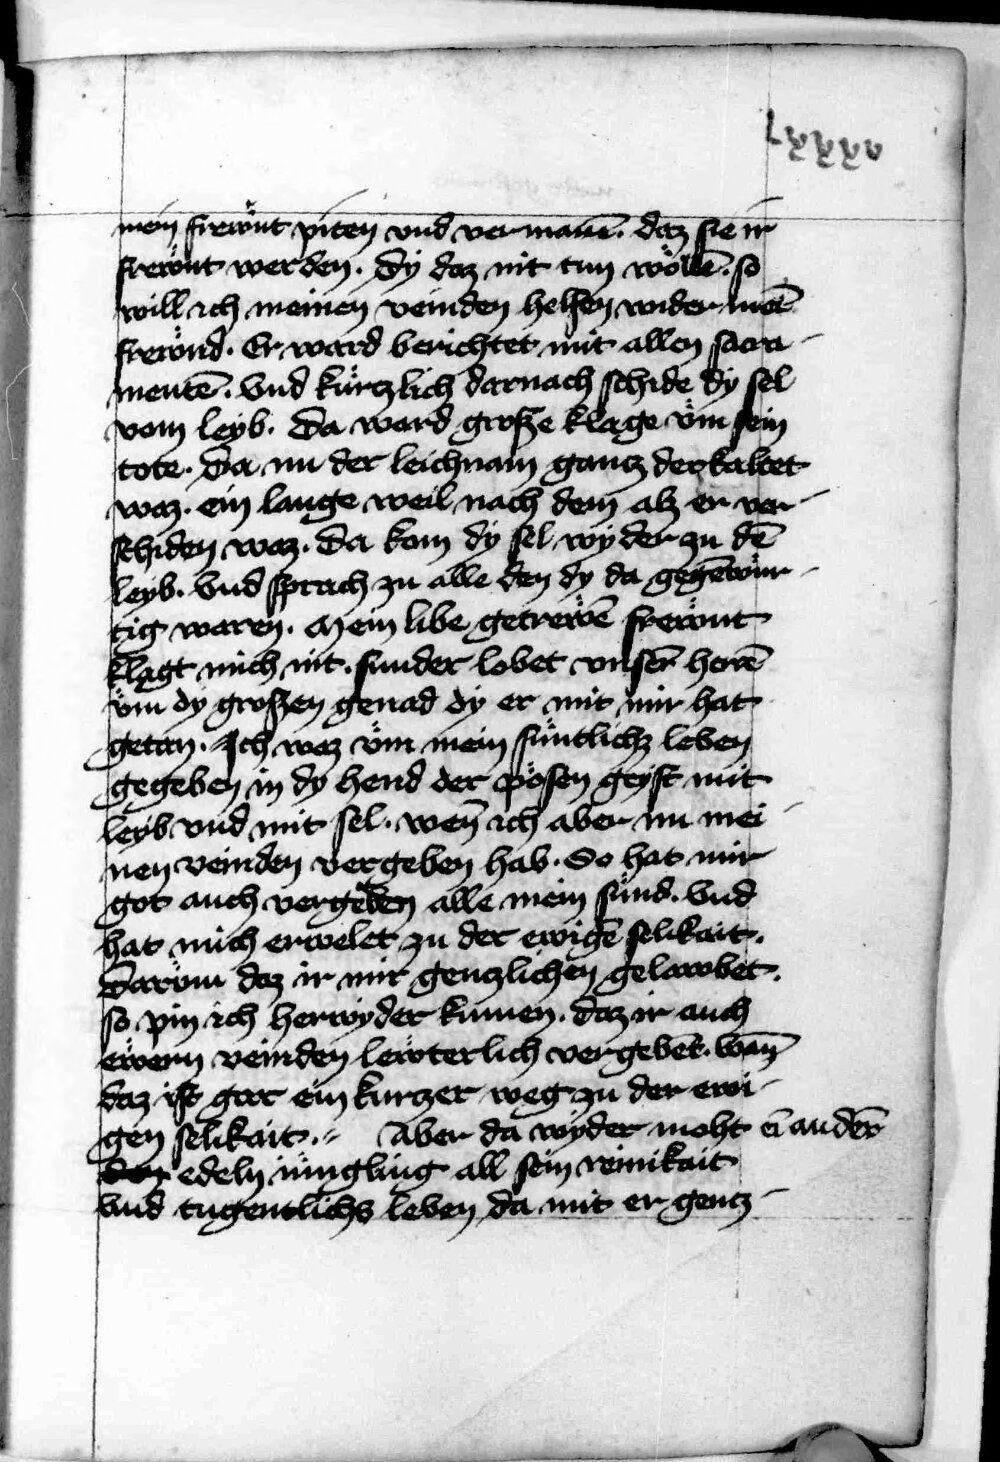 lxxxxv
mein frewͤnt piten vnd vermanē. daz sie ir
frewͤnt werden. Dy daz nit tun woͤllē. so
will ich meinen veinden helfen wider mei͞
frewͤnd. Er ward berichtet mit allen sacra-
mentē. Vnd kuͤrtzlich darnach schide dy sel
vom leyb. Da ward grosze klage vͤm sein
tote. Da nu der leichnam gantz derkaltet
waz. ein lange weil nach dem alz er ver-
schiden waz. Da kom dy sel wyder zu dē
leyb. Vnd sprach zu alle den dy da gegēwuͤr-
tig waren. Mein libe getrewͤē frewͤnt
klagt mich nit. sunder lobet vnser̄ herrē
vͤm dy groszen genad dy er mit mir hat
getan. Ich waz vͤm mein suͤntlichz leben
gegeben in dy hend der poͤsen geyst mit
leyb vnd mit sel. wen̄ ich aber nu mei-
nen veinden vergeben hab. So hat mir
got auch vergeben alle mein suͤnd. Vnd
hat mich erwelet zu der ewigē selikait.
Darvͤm daz ir mir gentzlichen gelawbet.
so pin ich herwyder kumen. daz ir auch
ewern veinden lewterlich vergebet. wan̄
daz ist gar ein kurtzer weg zu der ewi-
gen selikait. Aber da wyder moht ei͞ander̄
den edeln iuͤngling all sein reinikait
Vnd tugentlichs leben da mit er gentz-